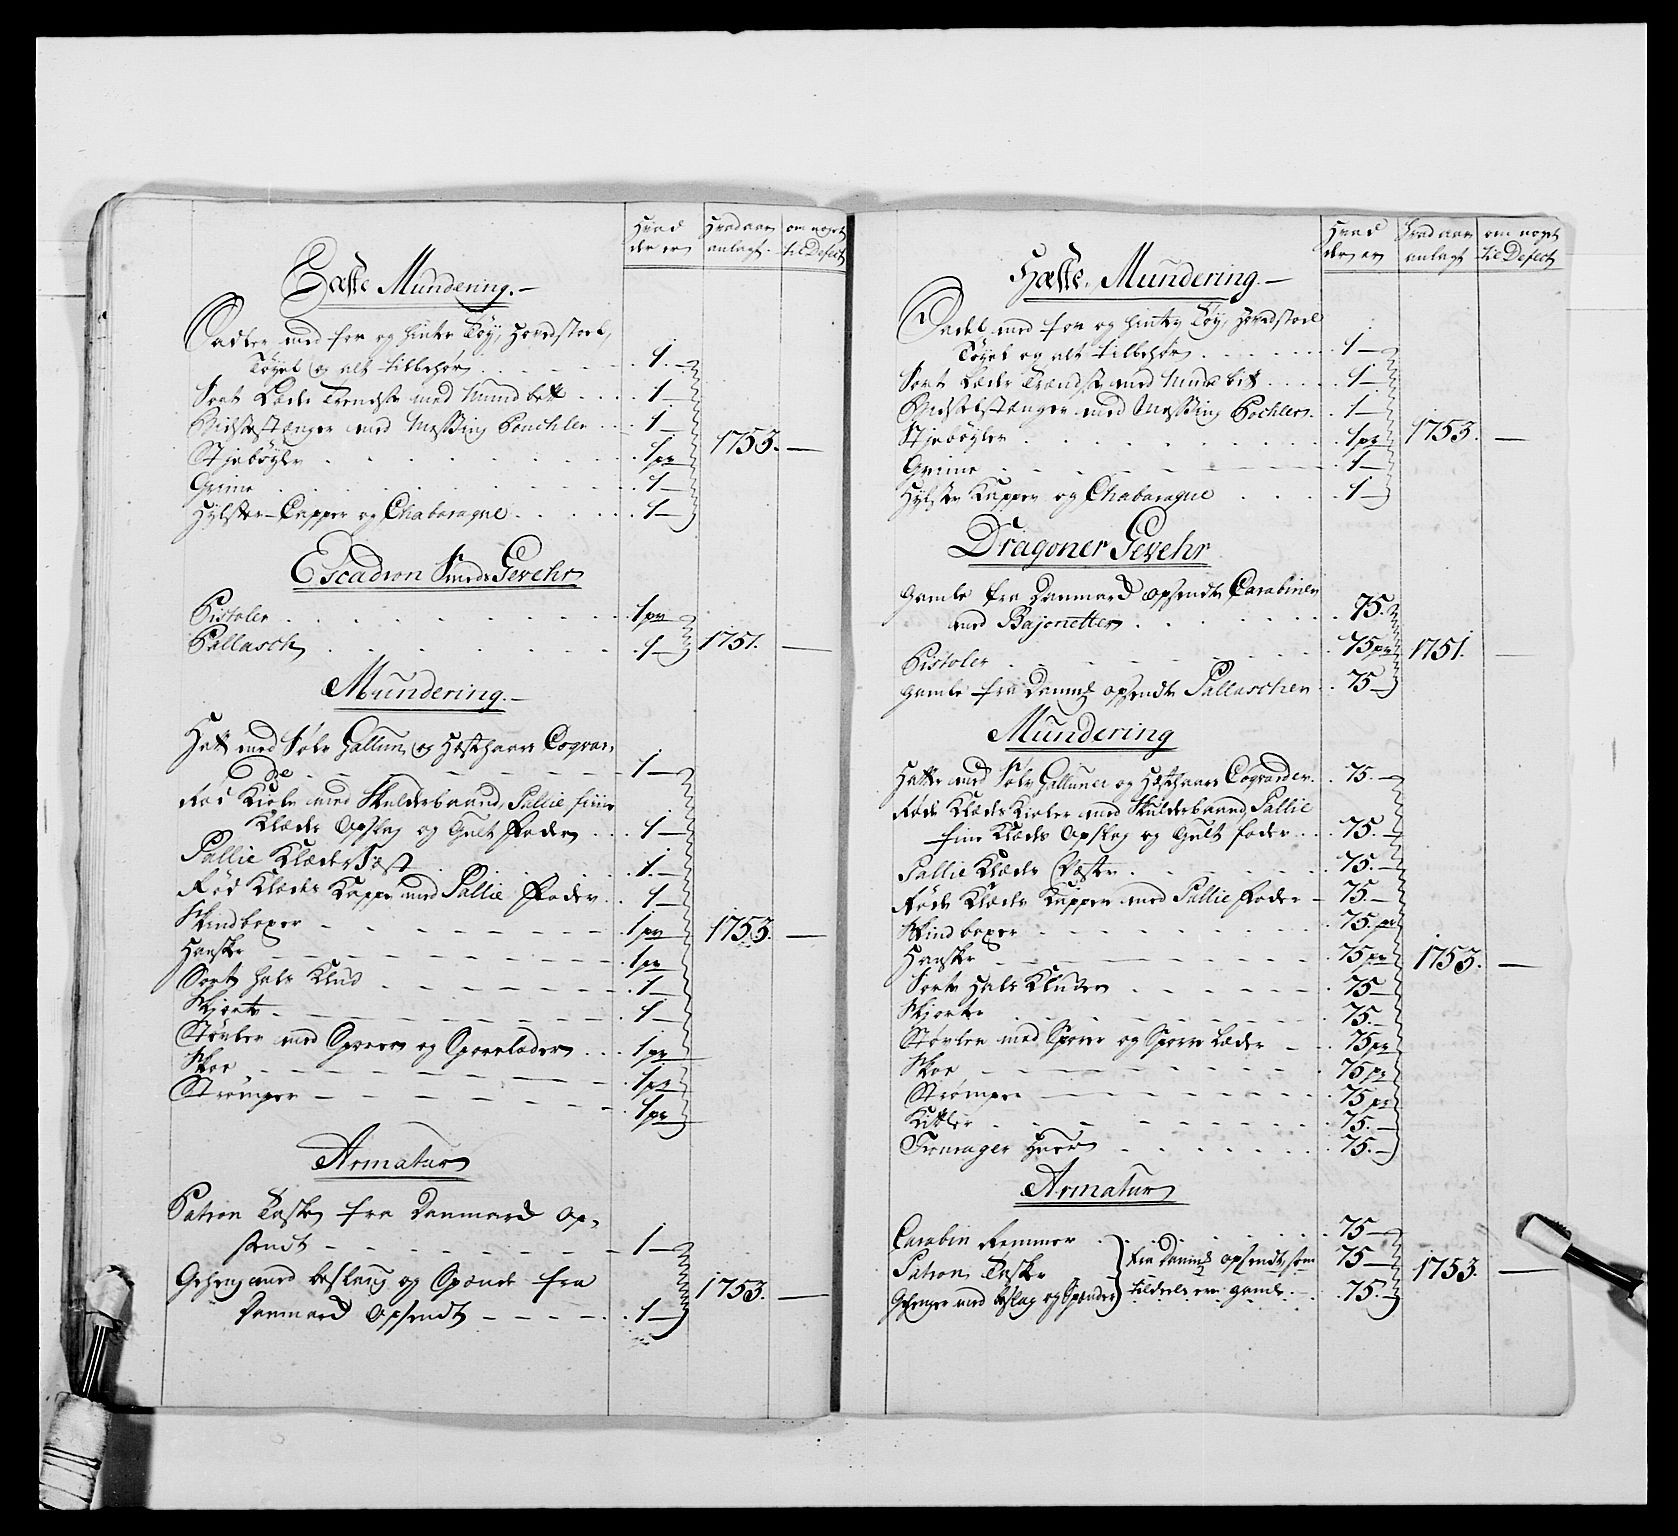 Hvad der er | Hvad aar anlagt. | om noget til Defect
Hæste Mundering.
Sadler med for og hinter Tøy, Hovedstoel,
Tøyel og alt tilbehør . . . 1.
Sort Læder Trendse med Mundbett . . . 1
Bidselstænger med Messing Pouchler . . . 1
Stjebøyler . . . 1 pr | 1753.
Grime . . . 1
Hylster-Capper og Chabaraque . . . 1
Escadron Smeds Gevehr
Pistoler . . . 1 pr
Pallasch . . . 1 | 1751.
Mundering.
Hatt med Sølv Gallun og Hesthaars Coquar,
de . . . 1
Rød Kiole med Skulderbaand, Pallie fiint
Klæde Opslag og Gult Foder . . . 1
Pallie Klæder Væst . . . 1.
Rød Klædes Kappe med Pallie Foder . . . 1
Skindboxer . . . 1 pr | 1753.
Hanske . . . 1 pr
Sort Hals Klud . . . 1
Skjorte . . . 1
Støvler med Sporer og Sporelæder . . . 1 pr
Skoe . . . 1 pr
Strømper . . . 1 pr
Armatur
Patron Taske fra Danmard op,
sendt . . . 1
Geheng med beslaug og Spænde fra | 1753.
Danmard Opsendt . . . 1
Hvad der er | Hvad aar anlagt | om noget til Defect
Hæste Mundering.
Sadel med for og hinter Tøy, Hovedstoel
Tøyel og alt tilbehør . . . 1
Sort Læder Trendse med Mundbett . . . 1
Bidselstænger med Messing Pochler . . . 1
Stjebøyler . . . 1 pr | 1753.
Grime . . . 1
Hylster Kapper og Chabaraque . . . 1
Dragoner Gevehr
Gamle fra Danmard opsendte Carabiner
med Bajonetter . . . 75.
Pistoler . . . 75 pr | 1751.
Gamle fra Danmd opsendte Pallascher . . 75
Mundering
Hatte med Sølv Galluner og Hesthaars Coquarder . . 75.
Røde Klædes Kioler med Skulderbaand Pallie
fiin Klædes Opslag og Gult foder . . . 75.
Pallie Klædes Væste . . . 75.
Røde Klædes Kapper med Pallie Foder 75.
Skindboxer . . . 75. pr
Hanske . . . 75 pr | 1753.
Sorte Hals Kluder . . . 75
Skjorter . . . 75.
Støvler med Sporer og Spore Læder . . . 75 pr
Skoe . . . 75 pr
Strømper . . . 75 pr
Kittler . . . 75.
Fourager Huer . . . 75.
Armatur
Carabin Remmer . . . 75
Patron Taske } fra Danmd opsendt, som 75 | 1753.
Gehenger med beslag og Spænder } tildeels ere gamle . . 75.